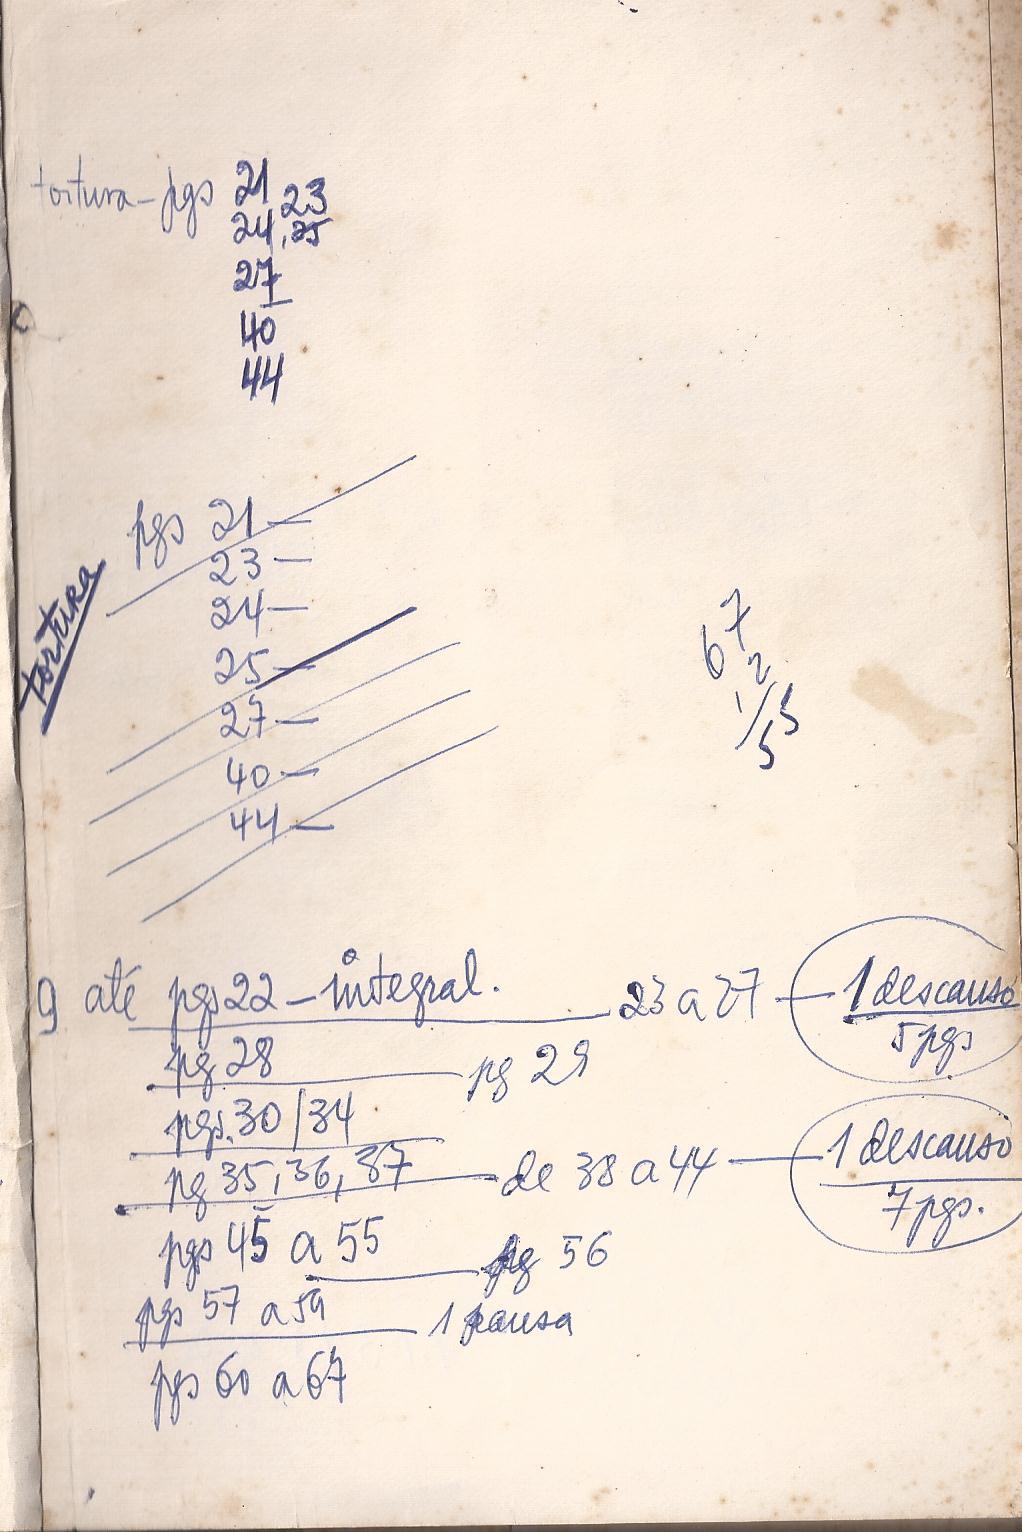 tortura - pgs 21
23
24, 25
27
40
44
pgs 21 —
23 —
24 —
tortura
25 —
27 —
40 —
44 —
67
12
/55
9 até pgs 22 - integral. 23 a 27 — 1 descanso
5 pgs
pg 28 pg 29
pgs. 30/34
pg 35, 36, 37 de 38 a 44 — 1 descanso
7 pgs.
pgs 45 a 55 pg 56
pgs 57 a 59 1 pausa
pgs 60 a 67